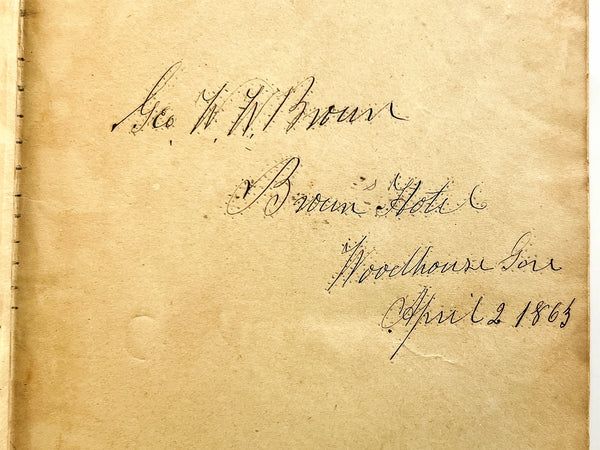 Geo. W. W. Brown
Brown's Hotel
Woodhouse Gore
April 2 1865